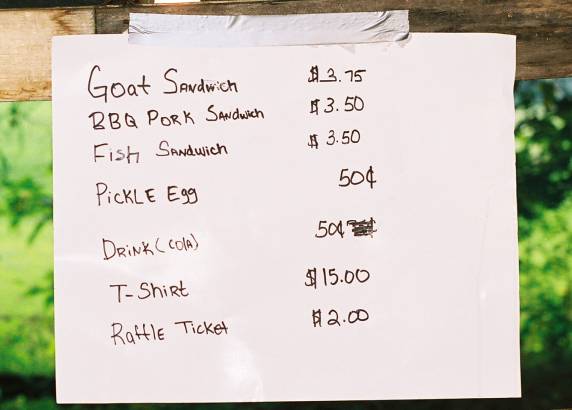 Goat Sandwich $3.75
BBQ Pork Sandwich $3.50
Fish Sandwich $3.50
Pickle Egg 50¢
Drink (cola) 50¢
T-Shirt $15.00
Raffle Ticket $2.00